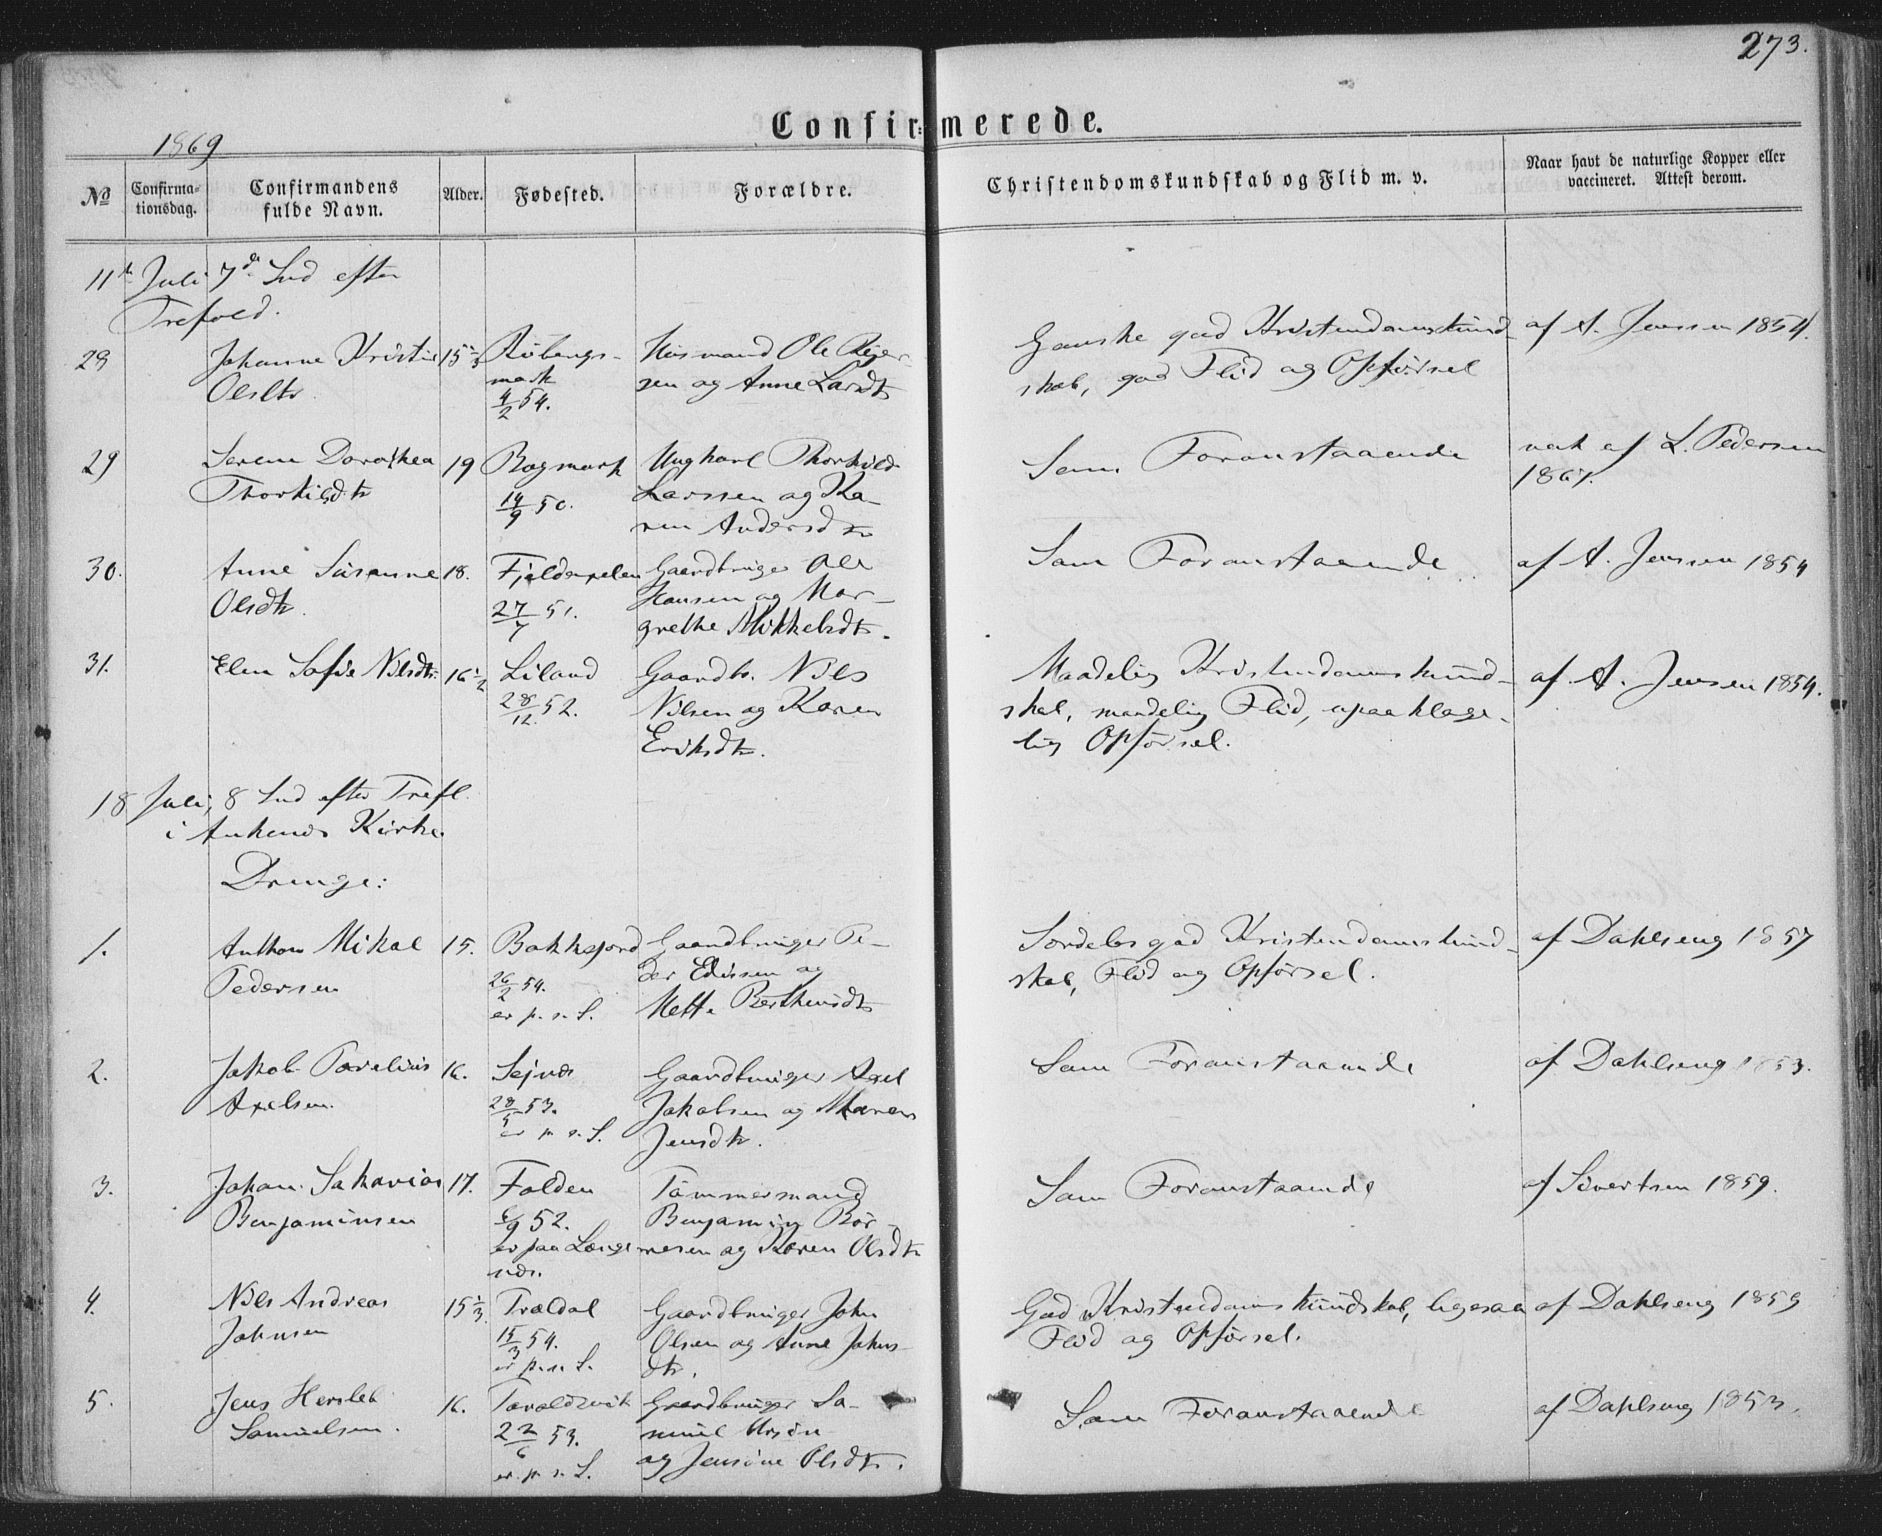 273.
Confirmerede.
1869
No
Confirma-
tionsdag.
Confirmandens
fulde Navn.
Alder.
Fødested.
Forældre.
Christendomskundskab og Flid m. v.
Naar havt de naturlige Kopper eller
vaccineret. Attest derom.
11te Juli 7de Snd efter
Trefold.
29 Johanne Kristine 15 1/3 Husmand Ole Ganske god Kristendomskund- af A. Jenssen 1854.
Olsdtr. mark sen og Anne Larsdtr skab, god Flid og Opførsel
4/2 54.
29 Serene Dorothea 19 Bogmark Ungkarl Thorkild Som Foranstaaende vak af L. Pedersen
Thorkildtr 14/9 50. Larssen og Ka- 1867.
ren Andersdtr
30. Anne Susanne 18. Gaardbruger Ole Som Foranstaaende af A. Jenssen 1854
Olsdtr. 27/7 51. Hansen og Mar-
grethe Mikkelsdtr.
31. Elen Sofie Nilsdtr. 16 1/2 Liland Gaardbr. Nils Maadelig Kristendomskund- af A. Jenssen 1854.
28/12. 52. Nilsen og Karen skab, maadelig Flid, upaaklage-
Eriksdtr. lig Opførsel.
18 Juli, 8 Snd efter Trefl.
i Ankenes Kirke
Drenge:
1. Anthon Mikal 15. Gaardbruger Pe- Særdeles god Kristendomskund- af Dahlseng 1857
Pedersen 26/2 54. der Edissen og skab, Flid og Opførsel.
er p. s. S. Mette Berthensdtr
2. Jakob 16. Sejnes Gaardbruger Axel Som Foranstaaende af Dahlseng 1853.
Axelsen. 28/5 53. Jakobsen og Maren
er p. s. S. Jensdtr.
3. Johan Sakarias 17. Folden Tømmermand Som Foranstaaende af Sivertsen 1859.
Benjaminsen 6/9 52. Benjamin Rør-
er paa Længe- nesen og Karen Olsdtr
nes.
4. Nils Andreas 15 1/3. Trældal Gaardbruger John God Kristendomskundskab, ligesaa af Dahlseng 1859
Johnsen 15/3 54. Olsen og Anne Johns- Flid og Opførsel.
er p. s. S. dtr.
5. Jens Hersleb 16. Taraldsvik Gaardbruger Sa- Som Foranstaaende af Dahlseng 1853.
Samuelsen. 22/6 53. muel
er p. s. S. og Jensine Olsdtr.